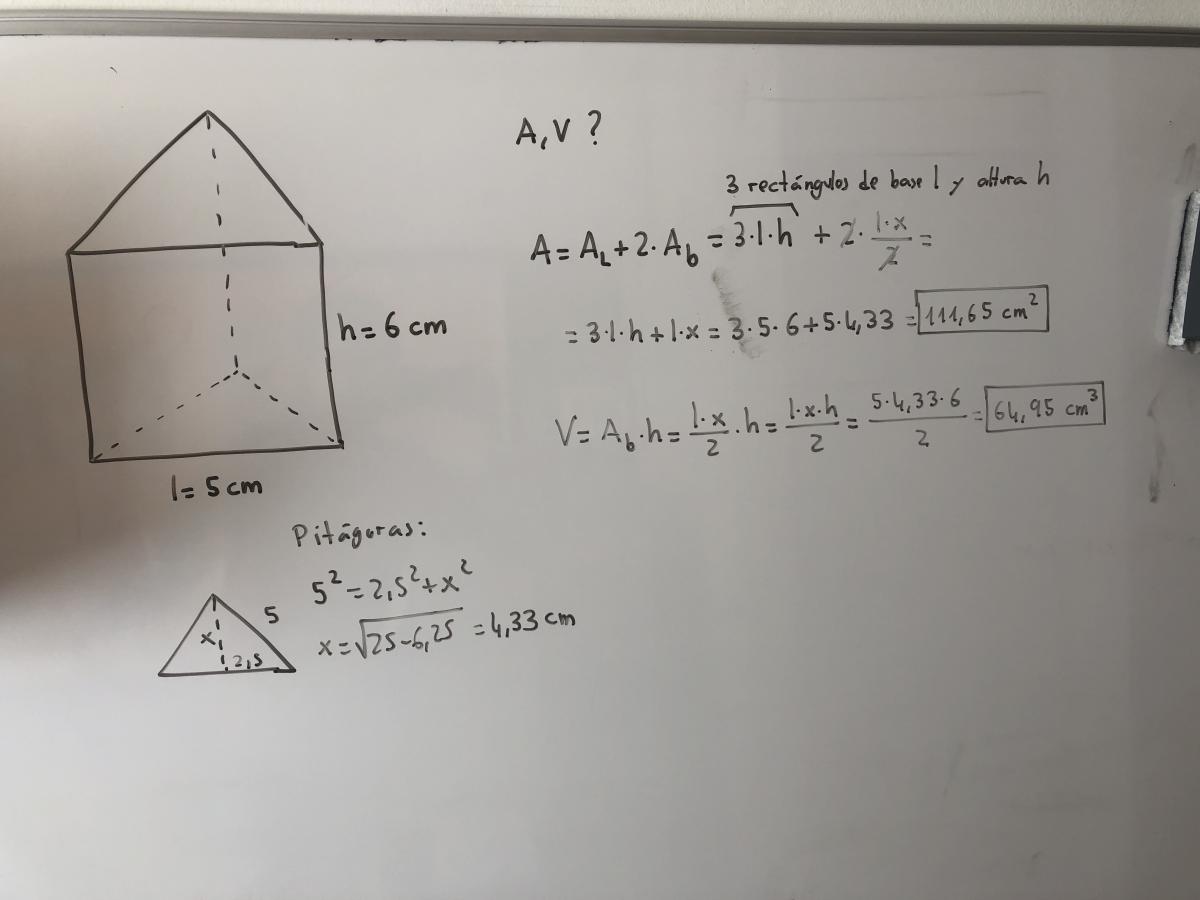 A, V ?
3 rectángulos de base l y altura h
A = A_L + 2 · A_b = 3 · l · h + 2 · (l · x)/2 =
= 3 · l · h + l · x = 3 · 5 · 6 + 5 · 4,33 = 111,65 cm²
V = A_b · h = (l · x)/2 · h = (l · x · h)/2 = (5 · 4,33 · 6)/2 = 64,95 cm³
h = 6 cm
l = 5 cm
Pitágoras:
5² = 2,5² + x²
x = √(25 - 6,25) = 4,33 cm
5
x
2,5